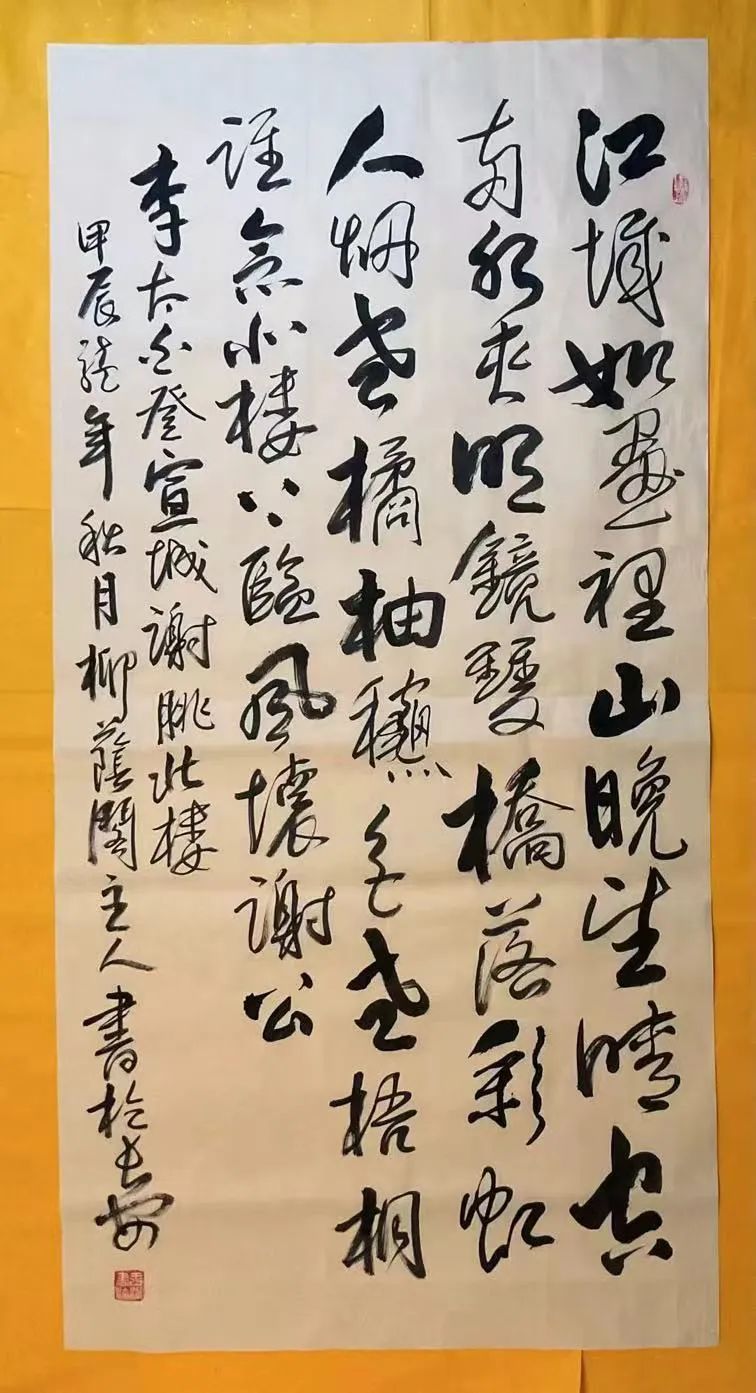 江城如畫裡山晚望晴空
兩水夾明鏡雙橋落彩虹
人烟老橘柚龝色老梧桐
誰念北樓上臨風懷謝公
李太白登宣城謝朓北樓
甲辰龍年秋月柳蔭閣主人書於長安